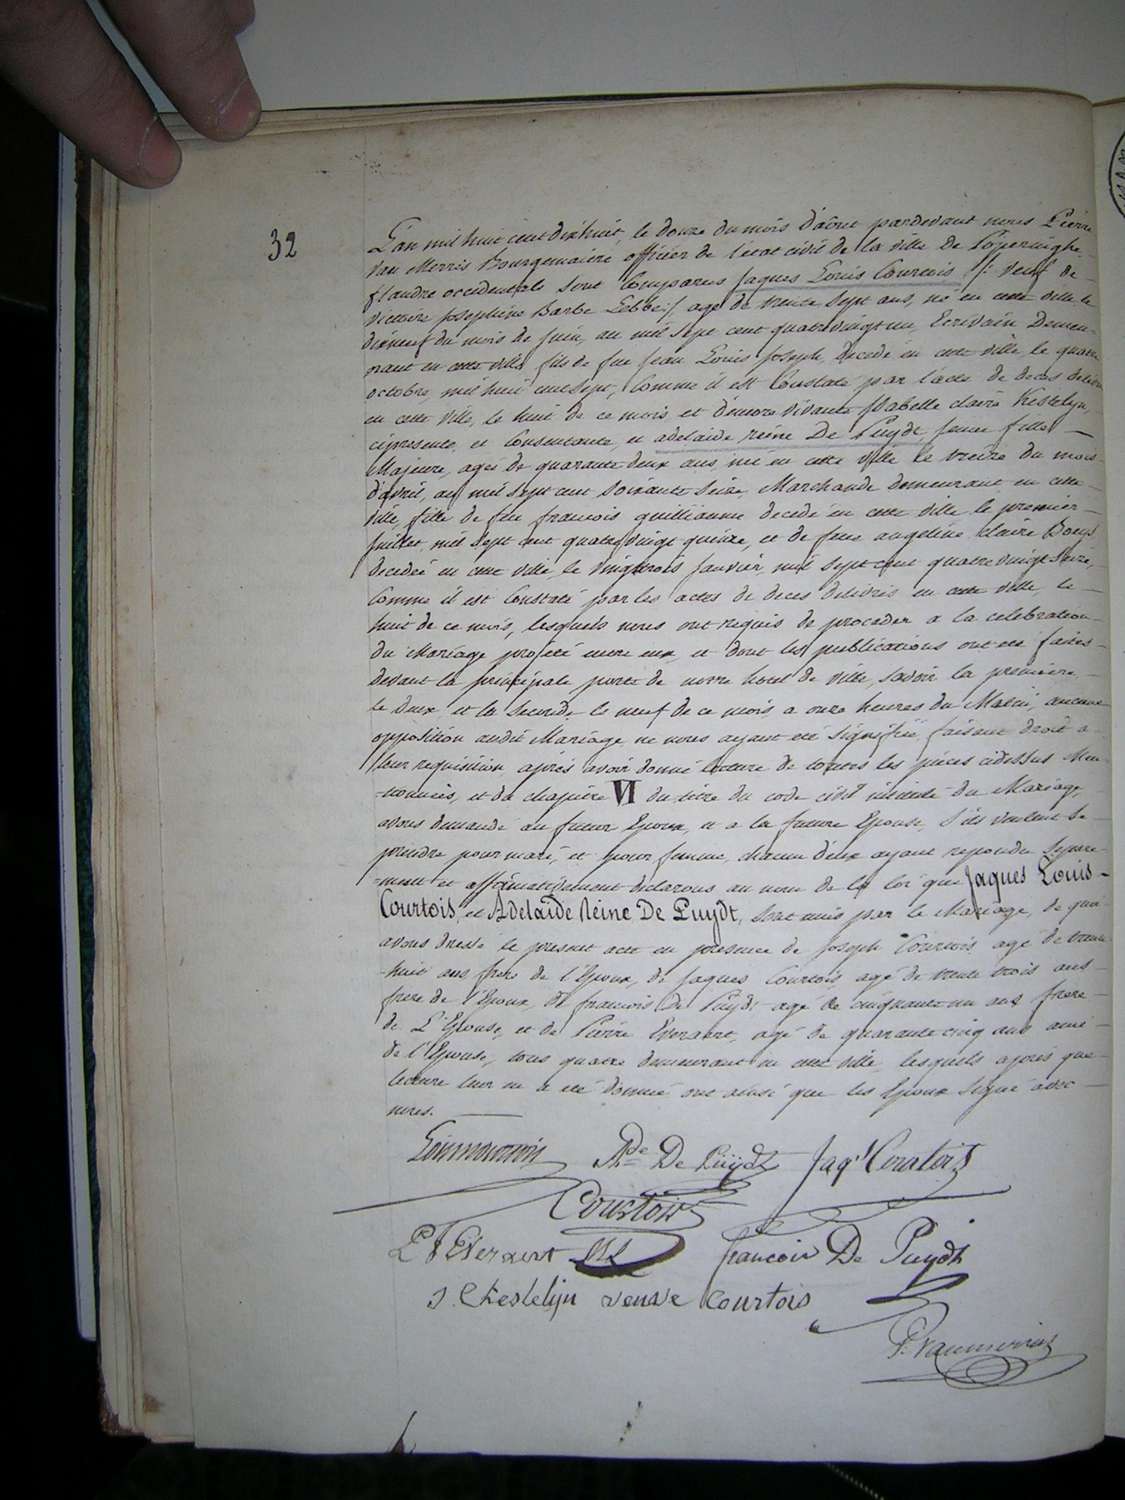 32
L'an mil huit cent dix huit, le douze du mois d'août pardevant nous Pierre
Van Merris Bourgemaitre officier de l'etat civil de la ville de Poperinghe
flandre occidentale sont Comparus Jaques Louis Courtois /: Veuf de
Victoire Josephine Barbe Lebbe :/ agé de trente sept ans, né en cette ville le
dixneuf du mois de Juin, an mil sept cent quatrevingt un, Ecrivain Demeu-
rant en cette ville, fils de feu Jean Louis Joseph, decedé en cette ville le quatre
octobre, mil huit cent sept, Comme il est Constaté par l'acte de deces delivré
en cette ville, le huit de ce mois et d'encore vivante Isabelle claire Kestelyn,
cipresente, et Consentante, et adelaide reine De Puydt, Jeune fille
Majeure, agée de quarante deux ans, née en cette ville le treize du mois
d'avril, an mil sept cent soixante seize, Marchande demeurant en cette
ville, fille de feu francois guillianne decedé en cette ville le premier
Juillet, mil sept cent quatrevingt quinze, et de feue angeline claire
decedée en cette ville, le vingtrois Janvier, mil sept cent quatrevingt seize,
Comme il est Constaté par les actes de deces delivrés en cette ville, le
huit de ce mois, lesquels nous ont requis de proceder a la celebration
du Mariage projeté entre eux, et dont les publications ont eté faites
devant la principale porte de notre hotel de ville, savoir la premiere
le deux et la seconde le neuf de ce mois a onze heures du Matin, aucune
opposition audit Mariage ne nous ayant eté signifiée, faisant droit a
leur requisition après avoir donné lecture de toutes les pièces cidessus Men-
-tionnées, et du chapitre VI du titre du code civil intitulé du Mariage,
avons demandé au futur Epoux, et a la future Epouse, s'ils veulent se
prendre pour mari, et pour femme, chacun d'eux ayant repondu separe-
-ment et affirmativement declarons au nom de la loi que Jaques Louis
Courtois, et Adelaïde Reine De Puydt, sont unis par le Mariage, de quoi
avons dressé le present acte en presence de Joseph Courtois agé de trente
huit ans frere de l'Epoux, de Jaques Courtois, agé de trente trois ans
frere de l'Epoux, de francois De Puydt agé de cinquante un ans frere
de L'Epouse, et de Pierre Everaert, agé de quarante cinq ans ami
de l'Epouse, tous quatre demeurant en cette ville, lesquels après que
lecture leur en a eté donnée ont ainsi que les Epoux signé avec
nous.
Ade De Puydt Jaqs Courtois
Courtois
P F Everaert francois De Puydt
J. C Kestelijn veuve Courtois
P. Vanmerris